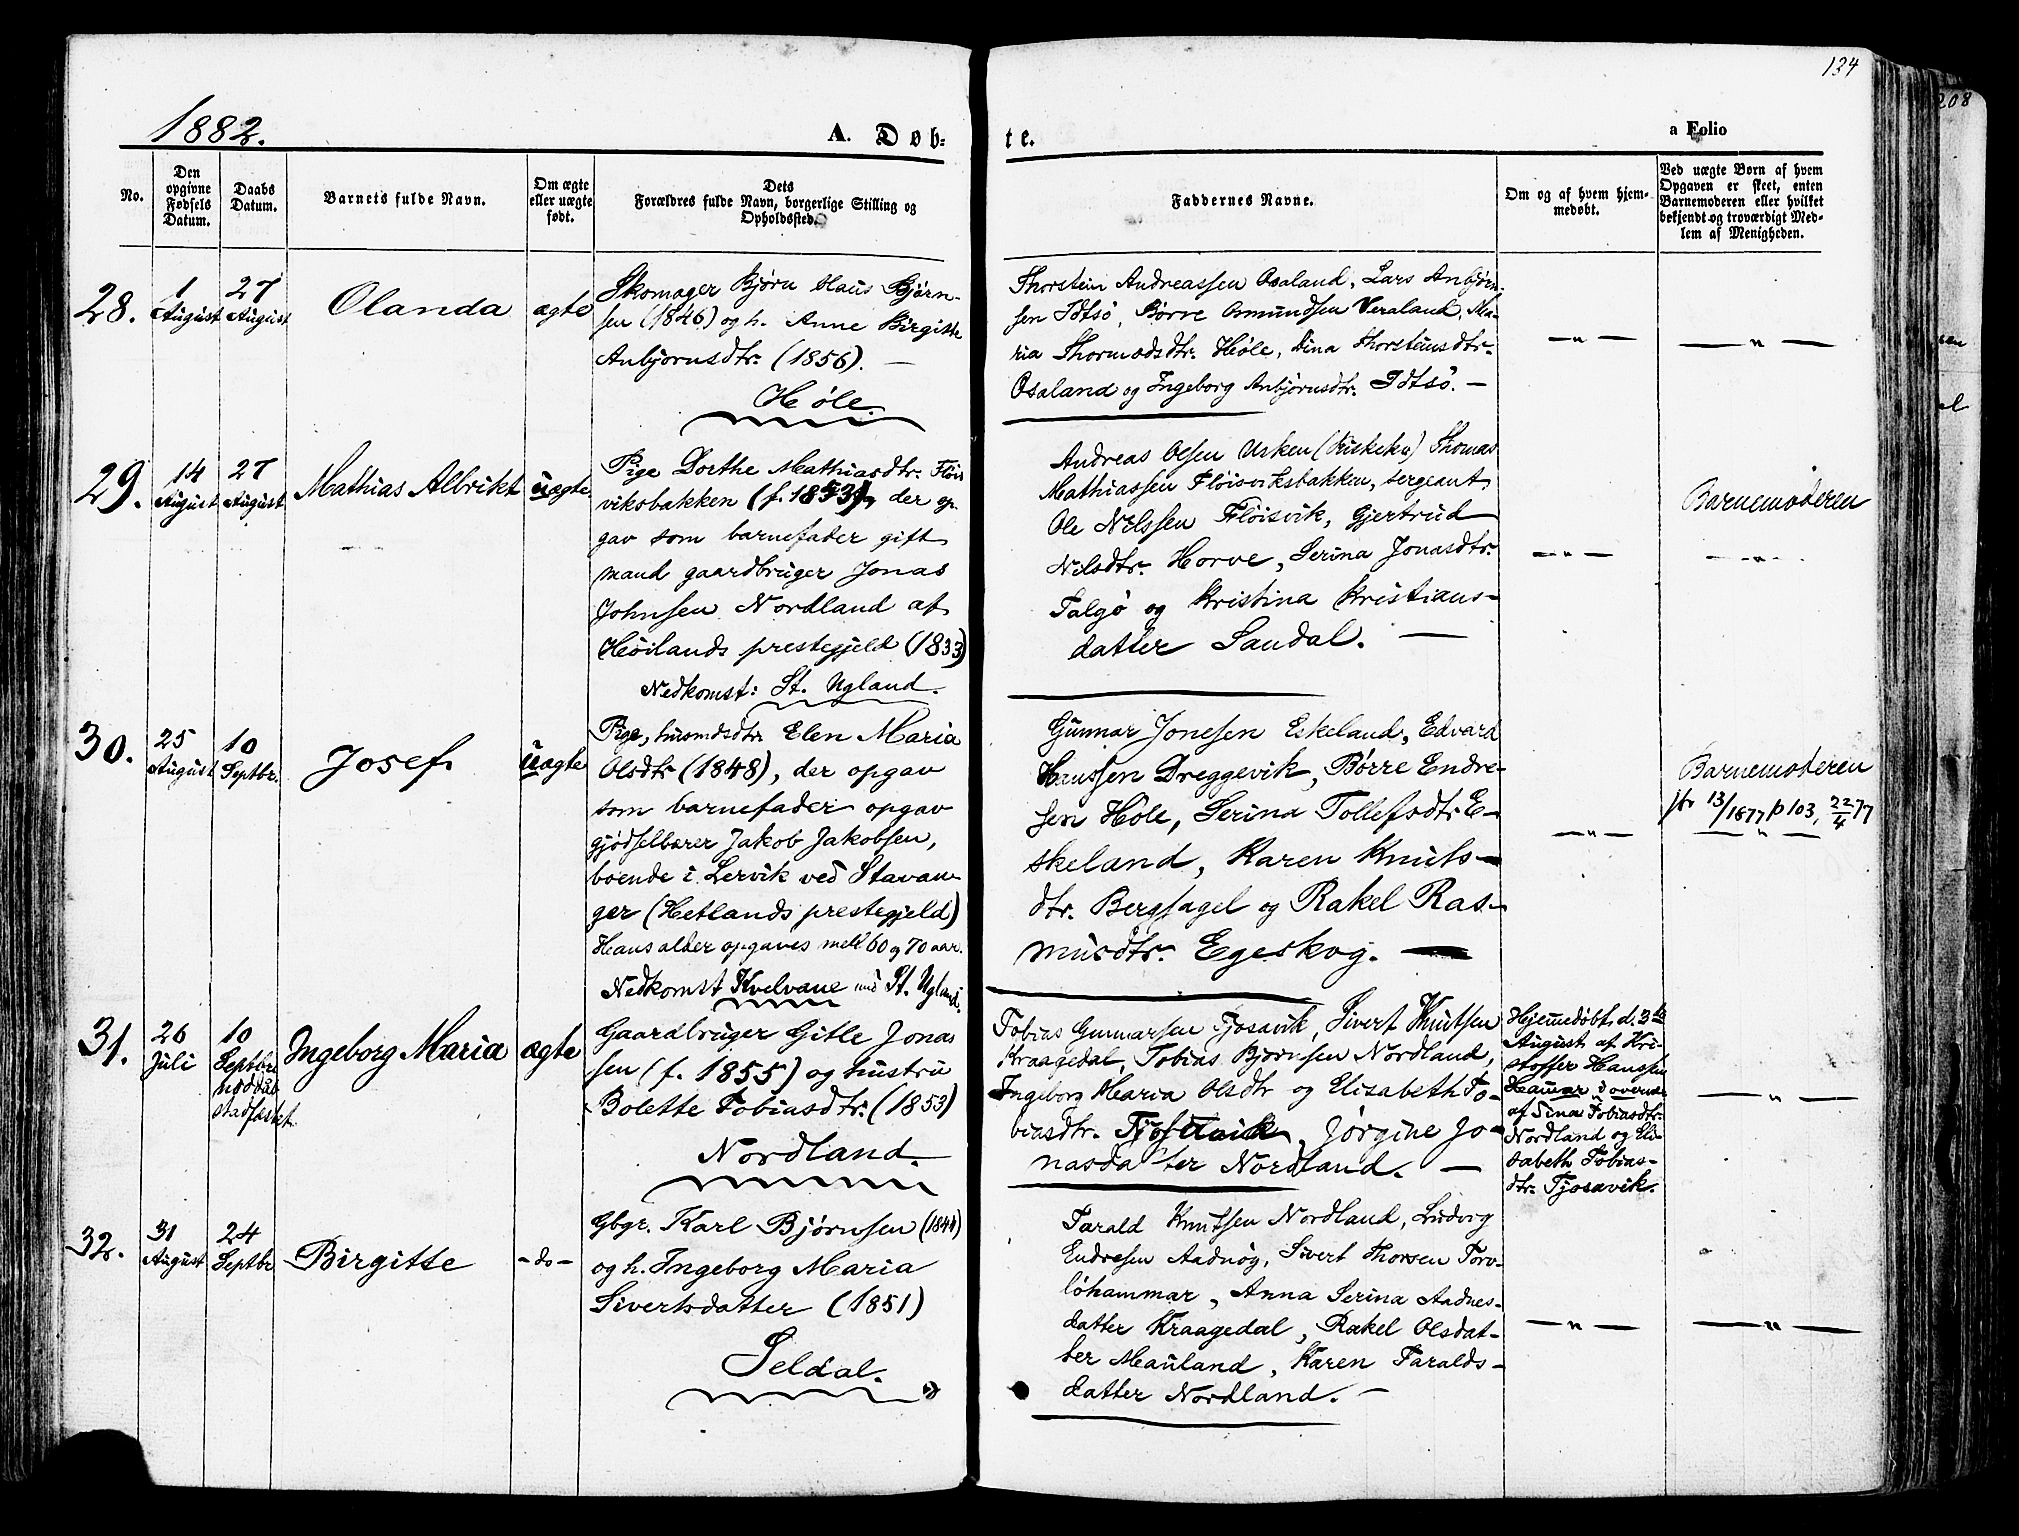 134
208
1882.
A. Døb-
te.
a Folio
No.
Den opgivne Fødsels Datum.
Daabs Datum.
Barnets fulde Navn.
Om ægte eller uægte født.
Dets Forældres fulde Navn, borgerlige Stilling og Opholdssted.
Faddernes Navne.
Om og af hvem hjemmedøbt.
Ved uægte Børn af hvem Opgaven er skeet, enten Barnemoderen eller hvilket bekjendt og troværdigt Medlem af Menigheden.
28.
1 August
27 August
Olanda
ægte
Skomager Bjørn Claus Bjørn-
sen (1846) og h. Anne Birgitte
Anbjornsdtr. (1856). —
Høle.
Thorstein Andreassen Osaland, Lars Anbjørn-
sen Idtsö, Børve Osmundsen Veraland, Ma-
ria Thormodsdtr. Høle, Dina Thorsteinsdtr.
Osaland og Ingeborg Anbjørnsdtr. Idtsö. —
— " —
— " —
29.
14 August
27 August
Mathias Albrikt
uægte
Pige Dorthe Mathiasdtr. Fløis
viksbakken (f. 1853), der op-
gav som barnefader gift
mand gaardbruger Jonas
Johnsen Nordland af
Høilands prestegjeld (1833)
Nedkomst: St. Ugland.
Andreas Olsen Usken (Riskekv.) Thomas
Mathiassen Fløisviksbakken, sergeant
Ole Nilssen Fløisvik, Gjertrud
Nilsdtr. Horve, Serina Jonasdtr.
Talgö og Kristina Kristians-
datter Sandal. —
— " —
Barnemoderen
— " —
30.
25 August
10 Septbr.
Josef
uægte
Pige, husmdsdtr. Elen Maria
Olsdtr (1848), der opgav
som barnefader opgav
gjødselbærer Jakob Jakobsen,
boende i Lervik ved Stavan-
ger (Hetlands prestegjeld)
Hans alder opgaves mell 60 og 70 aar.
Nedkomst Kvelvane und St. Ugland.
Gunnar Jonesen Eskeland, Edvard
Hanssen Dreggevik, Børre Endre-
sen Høle, Serina Tollefsdtr. E-
skeland, Karen Knuts-
dtr. Bergsagel og Rakel Ras-
musdtr. Egeskog. —
— " —
Barnemoderen
jfr 13/1877 p 103, 22/4 77
— " —
31.
26 Juli
10 Septbr.
stadfæstet
Ingeborg Maria
ægte
Gaardbruger Gitle Jonas
sen (f. 1855) og hustru
Bolette Tobiasdtr. (1853)
Nordland.
Tobias Gunnarsen Tjosavik, Sivert Knutsen
Kraagedal, Tobias Bjørnsen Nordland,
Ingeborg Maria Olsdtr og Elisabeth To-
biasdtr. Tjosavik, Jørgine Jo-
nasdatter Nordland. —
Hjemmedøbt d. 3te
August af Kri-
stoffer Hanssen
Hammar i overvær
af Sina Tobiasdtr.
Nordland og Eli-
sabeth Tobias-
dtr. Tjosavik.
— " —
32.
31 August
24 Septbr
Birgitte
- do -
Gbgr. Karl Bjørnsen (1844)
og h. Ingeborg Maria
Sivertsdatter (1851)
Seldal.
Tarald Knutsen Nordland, Ludvig
Endresen Aadnøy, Sivert Thorsen Torv-
löhammar, Anna Serina Aadnes-
datter Kraagedal, Rakel Olsdat-
ter Mauland, Karen Taralds-
datter Nordland. —
— " —
— " —